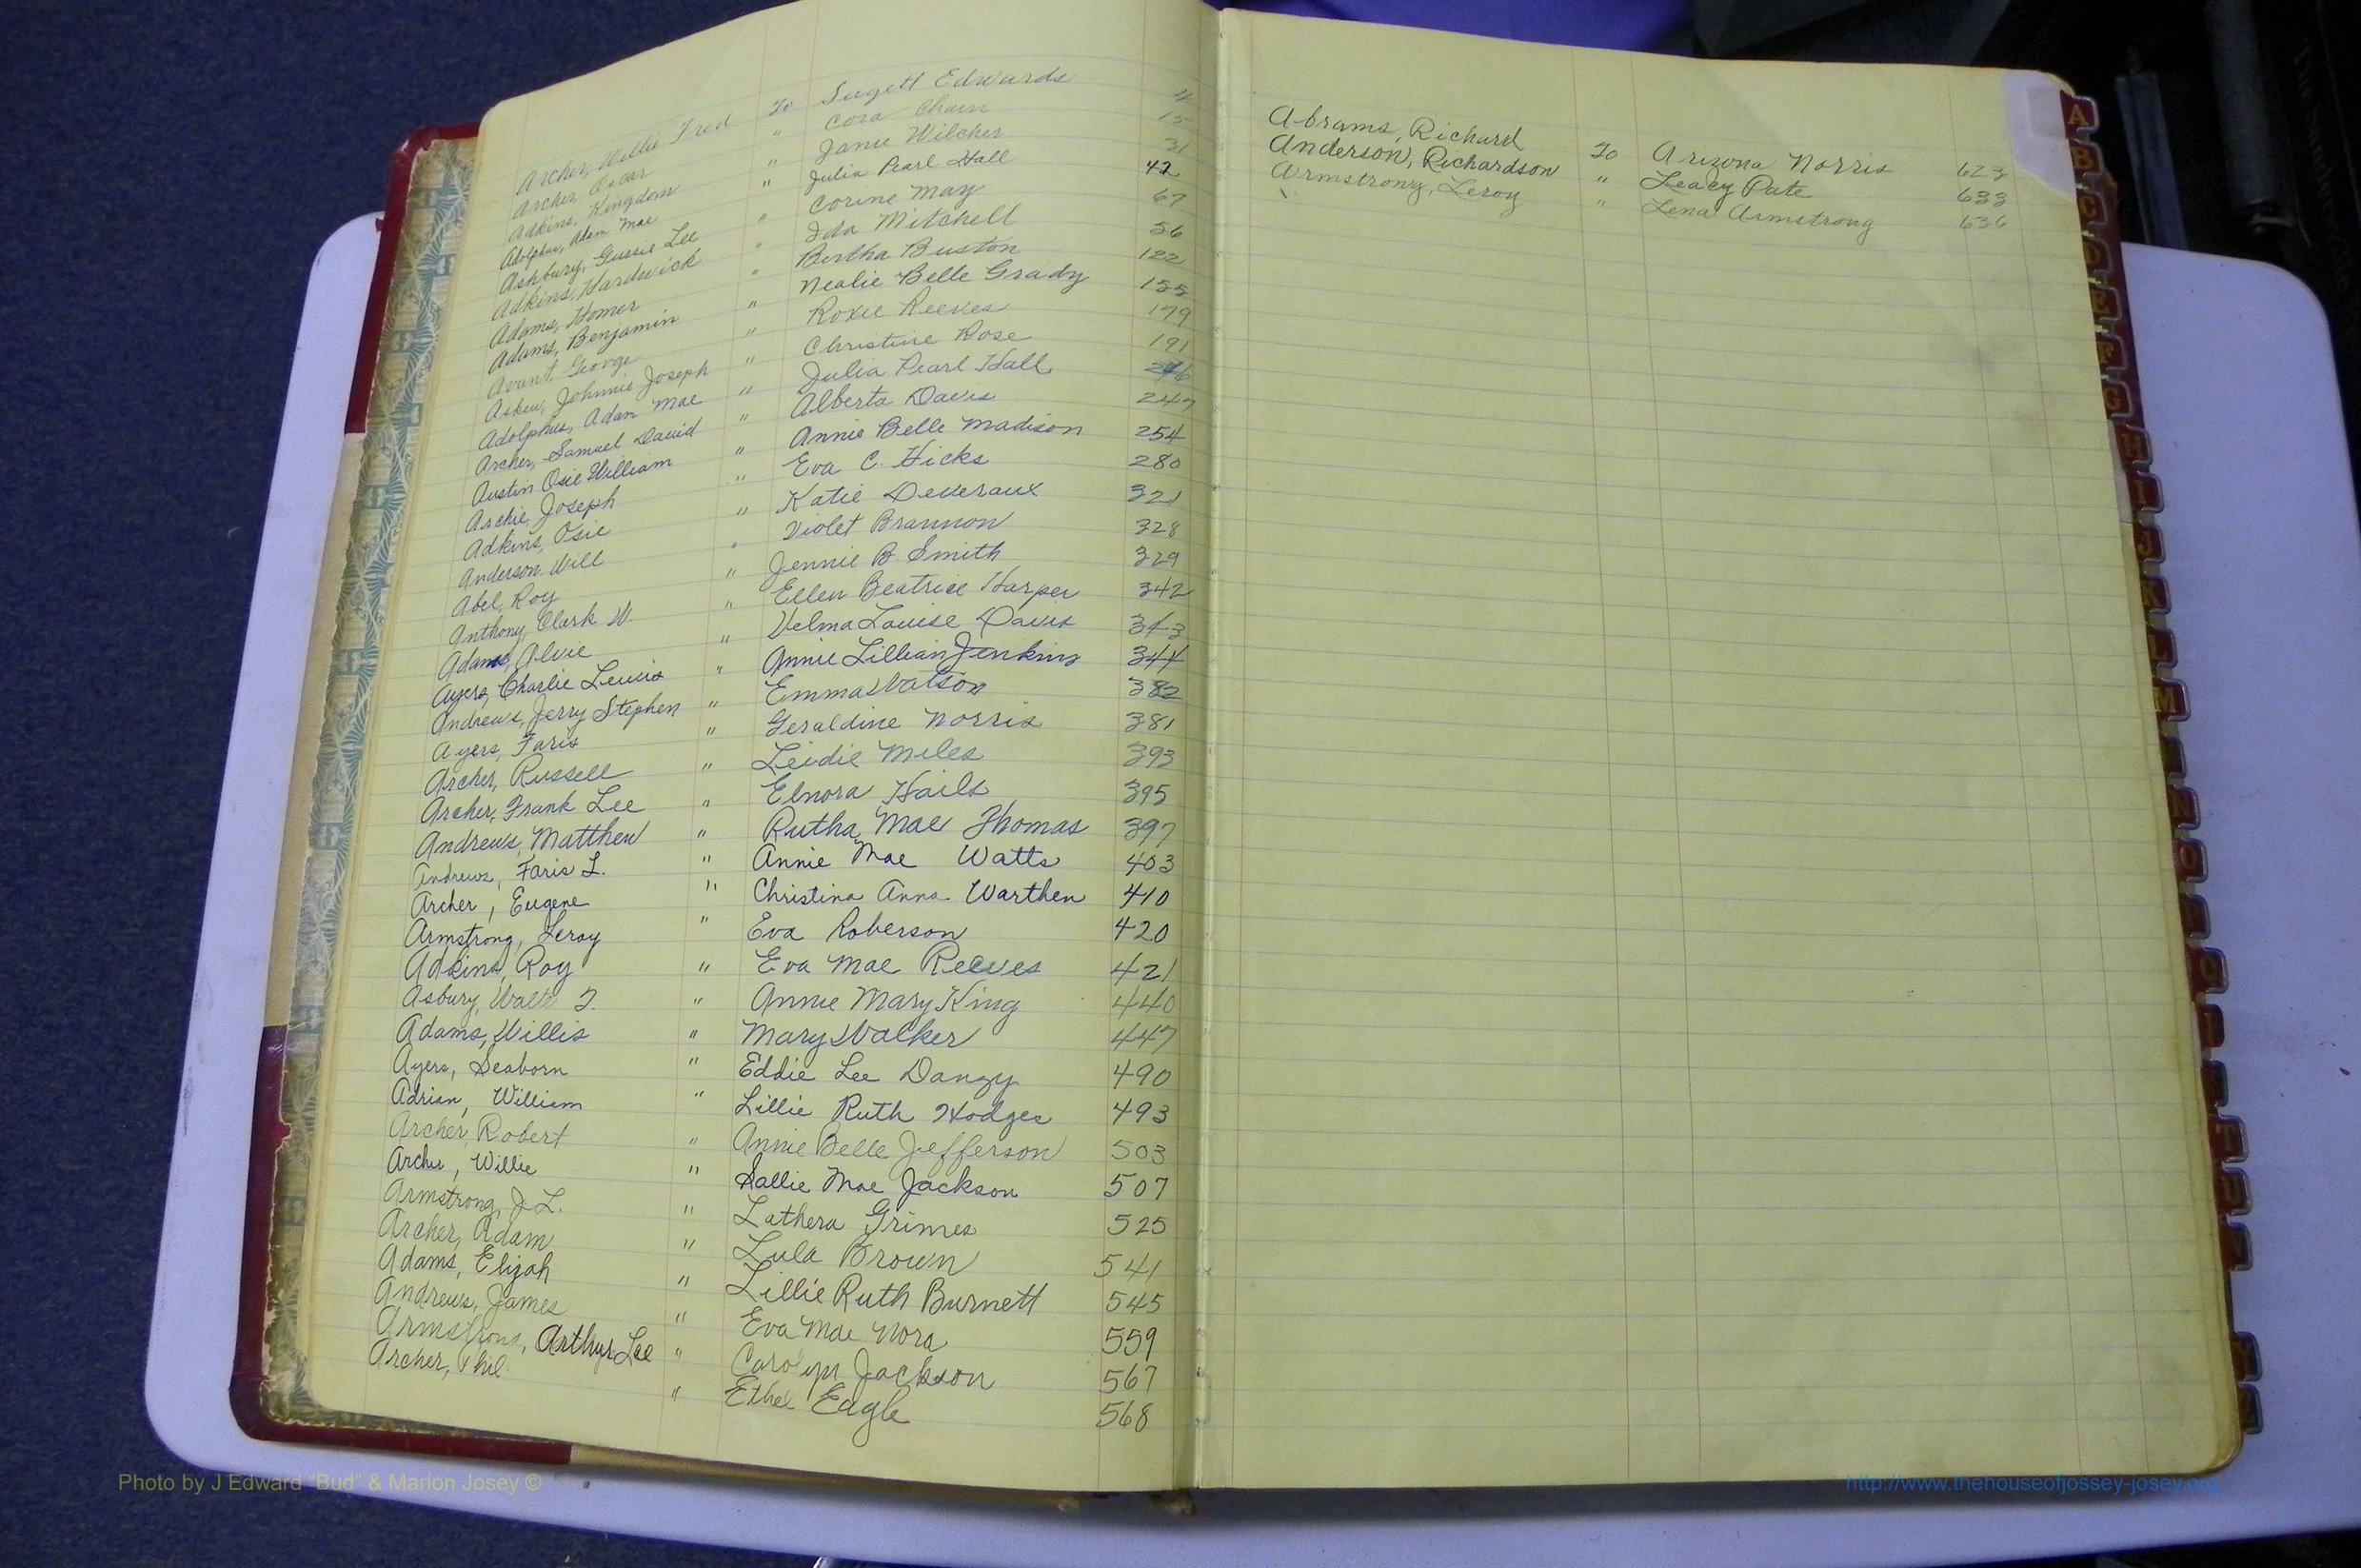 Archer, Willie Fred To Sugett Edwards 4
Archer, Oscar " Cora Chain 15
Adkins, Kingdom " Janie Wilcher 31
Adolphus, Adam Mae " Julia Pearl Hall 42
Ashbury, Gussie Lee Corine May 67
Adkins, Hardwick " Ida Mitchell 56
Adams, Homer " Bertha Buston 122
Adams, Benjamin " Nealie Belle Grady 155
Avant, George " Roxie Reeves 179
Askew, Johnnie Joseph " Christine Rose 191
Adolphus, Adam Mae " Julia Pearl Hall 246
Archer, Samuel David " Alberta Davis 247
Austin Osie William " Annie Belle Madison 254
Archie, Joseph " Eva C. Hicks 280
Adkins, Osie " Katie Deveraux 321
Anderson Will " Violet Brannon 328
Abel, Roy " Jennie B Smith 329
Anthony, Clark W. " Ellen Beatrice Harper 342
Adams, Alvie " Velma Louise Davis 343
Ayers, Charlie Lewis " Annie Lillian Jenkins 344
Andrews, Jerry Stephen " Emma Watson 382
Ayers, Faris " Geraldine Norris 381
Archer, Russell " Leidie Miles 393
Archer, Frank Lee " Elnora Hails 395
Andrews, Matthew " Rutha Mae Thomas 397
Andrews, Faris L. " Annie Mae Watts 403
Archer, Eugene " Christina Anna Warthen 410
Armstrong, Leroy " Eva Roberson 420
Adkins, Roy " Eva Mae Reeves 421
Asbury, Walter J. " Annie Mary King 440
Adams, Willis " Mary Walker 447
Ayers, Seaborn " Eddie Lee Dangy 490
Adrian, William " Lillie Ruth Hodges 493
Archer, Robert " Annie Belle Jefferson 503
Archer, Willie " Sallie Mae Jackson 507
Armstrong, J.L. " Lathera Grimes 525
Archer, Adam " Lula Brown 541
Adams, Elijah " Lillie Ruth Burnett 545
Andrews, James " Eva Mae Nora 559
Armstrong, Arthur Lee " Carolyn Jackson 567
Archer, Phil " Ethel Eagle 568
Abrams, Richard To Arizona Norris 623
Anderson, Richardson " Leacy Pate 633
Armstrong, Leroy " Lena Armstrong 636
A
B
C
D
E
F
G
H
I
J
K
L
M
Photo by J Edward "Bud" & Marion Josey ©
http://www.thehouseofjossey-josey.org